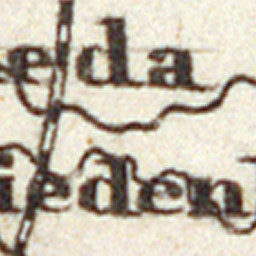 eda
ieden